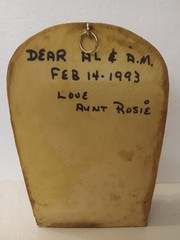 DEAR AL & A.M.
FEB 14-1993
LOVE
AUNT ROSIE